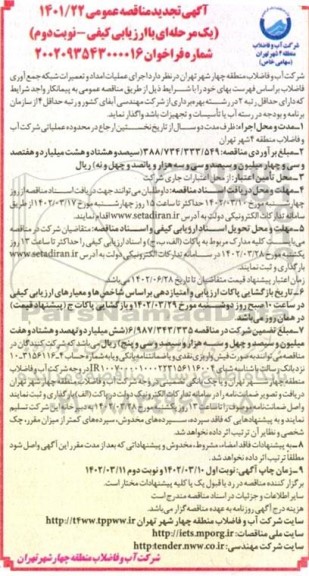 آگهی تجدید مناقصه عمومی ۱۴۰۱/۲۲
(یک مرحله‌ای با ارزیابی کیفی - نوبت دوم)
شماره فراخوان ۲۰۰۲۰۹۳۵۴۳۰۰۰۰۱۶
شرکت آب و فاضلاب
منطقه ۴ شهر تهران
(سهامی خاص)
شرکت آب و فاضلاب منطقه چهار شهر تهران در نظر دارد اجرای عملیات امداد و تعمیرات شبکه جمع آوری
فاضلاب براساس فهرست بهای خود را با شرایط ذیل از طریق مناقصه عمومی به پیمانکار واجد شرایط
که دارای حداقل رتبه ۲ در رشته بهره‌برداری از شرکت مهندسی آبفای کشور و رتبه حداقل ۴ از سازمان
برنامه و بودجه در رشته آب یا تأسیسات و تجهیزات باشد واگذار نماید.
۱- مدت و محل اجرا: ظرف مدت دو سال از تاریخ نخستین ارجاع در محدوده عملیاتی شرکت آب
و فاضلاب منطقه ۴ شهر تهران
۲- مبلغ برآوردی مناقصه: ۳۸۸/۷۳۴/۳۳۳/۵۴۹ (سیصد و هشتاد و هشت میلیارد و هفتصد
و سی و چهار میلیون و سیصد و سی و سه هزار و پانصد و چهل و نه) ریال
۳- محل تأمین اعتبار: از محل اعتبارات جاری شرکت
۴- مهلت و محل دریافت اسناد مناقصه: داوطلبان می‌توانند جهت دریافت اسناد مناقصه از روز
چهارشنبه مورخ ۱۴۰۲/۰۳/۱۰ حداکثر تا ساعت ۱۵ روز چهارشنبه مورخ ۱۴۰۲/۰۳/۱۷ از طریق
سامانه تدارکات الکترونیکی دولت به آدرس www.setadiran.ir اقدام نمایند.
۵- مهلت و محل تحویل اسناد ارزیابی کیفی و اسناد مناقصه: متقاضیان شرکت در مناقصه
می‌بایست کلیه مدارک مربوط به پاکات (الف، ب، ج) و اسناد ارزیابی کیفی را حداکثر تا ساعت ۱۳ روز
یکشنبه مورخ ۱۴۰۲/۰۳/۲۸ در سامانه تدارکات الکترونیکی دولت به آدرس www.setadiran.ir
بارگذاری و ثبت نمایند.
زمان اعتبار پیشنهاد قیمت متقاضیان تا تاریخ ۱۴۰۲/۰۶/۲۸ می‌باشد.
۶- تاریخ بازگشایی پاکات ارزیابی و امتیازدهی براساس شاخص‌ها و معیارهای ارزیابی کیفی
در ساعت ۱۰ صبح روز دوشنبه مورخ ۱۴۰۲/۰۳/۲۹ و بازگشایی پاکات ج (پیشنهاد قیمت)
در همان روز می‌باشد.
۷- مبلغ تضمین شرکت در مناقصه ۶/۹۸۷/۳۴۳/۳۳۵ (شش میلیارد و نهصد و هشتاد و هفت
میلیون و سیصد و چهل و سه هزار و سیصد و سی و پنج) ریال می‌باشد که شرکت کنندگان در
مناقصه می‌توانند به صورت فیش واریزی نقدی و یا ضمانتنامه بانکی و یا به شماره حساب ۱۰-۳۱۵۶۱۱۶-۴
نزد بانک رسالت با شناسه شبای در وجه شرکت آب و فاضلاب
منطقه چهار شهر تهران و یا چک بانکی تضمینی در وجه شرکت آب و فاضلاب منطقه چهار شهر تهران
دریافت و تصویر ضمانت‌نامه را در سامانه تدارکات الکترونیک دولت در پاکت (الف) بارگذاری و ثبت نمایند
نمایند و به پیشنهادهایی که فاقد سپرده، سپرده‌های مخدوش، سپرده‌های کمتر از میزان مقرر، چک
شخصی و نظایر آن ترتیب اثر داده نخواهد شد.
۸- به پیشنهادات فاقد امضاء، مشروط، مخدوش و پیشنهاداتی که بعد از مدت مقرر این آگهی واصل شود
مطلقاً ترتیب اثر داده نخواهد شد.
۹- زمان چاپ آگهی: نوبت اول ۱۴۰۲/۰۳/۱۰ و نوبت دوم ۱۴۰۲/۰۳/۱۱
برگزار کننده مناقصه در رد یا قبول یک یا کلیه پیشنهادات مختار است.
سایر اطلاعات و جزئیات در اسناد مناقصه مندرج است
هزینه درج آگهی روزنامه به عهده مناقصه گزار می‌باشد.
سایت شرکت آب و فاضلاب منطقه چهار شهر تهران http://t4ww.tpww.ir
سایت ملی مناقصات: http://iets.mporg.ir
سایت شرکت مهندسی: http:tender.nww.co.ir
شرکت آب و فاضلاب منطقه چهار شهر تهران